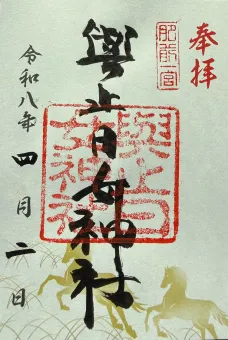 奉拝
肥前一宮
與止日女神社
與止日女神社
令和八年
四月二日